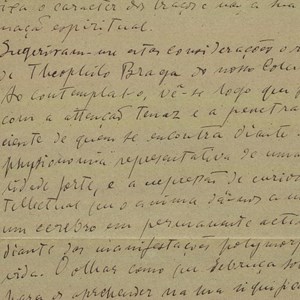 ça o caracter dos traços e vae a sua
mação espiritual.
Suggeriram-me estas considerações o r
de Theophilo Braga do nosso Colu
Ao contemplal-o, vê-se logo que
com a attenção tenaz e a penetra
ciente de quem se encontra diante
physionomia representativa de uma
cidade forte, e a expressão de curios
tellectual que o anima dá-nos a
um cerebro em permanente acti
diante das manifestações polymorp
vida. O olhar como que se debruça so
para os aprehender na sua